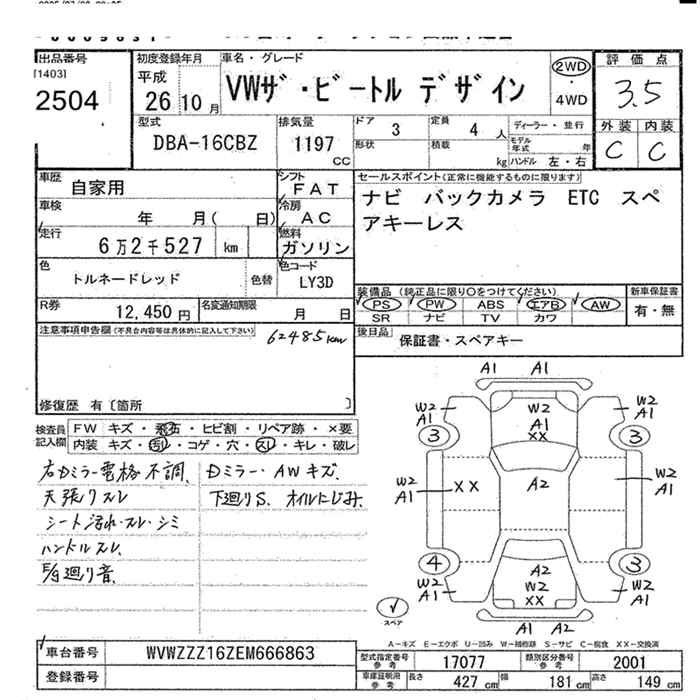 出品番号
[1403]
2504
初度登録年月
平成
26年10月
車名・グレード
VWザ・ビートル デザイン
2WD
4WD
評価点
3.5
外装 内装
C C
型式
DBA-16CBZ
排気量
1197
cc
ドア 3
形状
定員 4 人
積載 kg
ディーラー・並行
モデル年式 年
ハンドル 左・右
車歴
自家用
車検
年 月( 日)
走行
6万2千527 km
シフト
FAT
冷房
AC
燃料
ガソリン
色
トルネードレッド
色替
色コード
LY3D
R券
12,450 円
名変通知期限
月 日
セールスポイント(正常に機能するものに限ります)
ナビ バックカメラ ETC スペ
アキーレス
装備品 (純正品に限り○をつけてください)
PS PW ABS エアB AW
SR ナビ TV カワ
新車保証書
有・無
後日品
保証書・スペアキー
注意事項申告欄(不具合内容等は具体的に記入して下さい)
62485km
修復歴 有〔箇所 〕
検査員
記入欄
FW キズ・飛石・ヒビ割・リペア跡・×要
内装 キズ・汚レ・コゲ・穴・スレ・キレ・破レ
右Dミラー電格不調、
天張りスレ
シート汚れ・スレ・シミ
ハンドルスレ、
E/g廻り音、
Dミラー・AWキズ、
下廻りS、オイルにじみ、
A1
A1
W2
A1
W2
A1
XX
W2
A1
3
3
W2
A1
XX
A2
W2
A1
4
3
W2
A1
A2
W2
XX
W2
A1
A1 A2
スペア
A-キズ E-エクボ U-凹み W-補修跡 S-サビ C-腐食 XX-交換済
車台番号
WVWZZZ16ZEM666863
登録番号
型式指定番号
参考
17077
類別区分番号
参考
2001
車庫証明用
参考
長さ 427 cm
幅 181 cm
高さ 149 cm